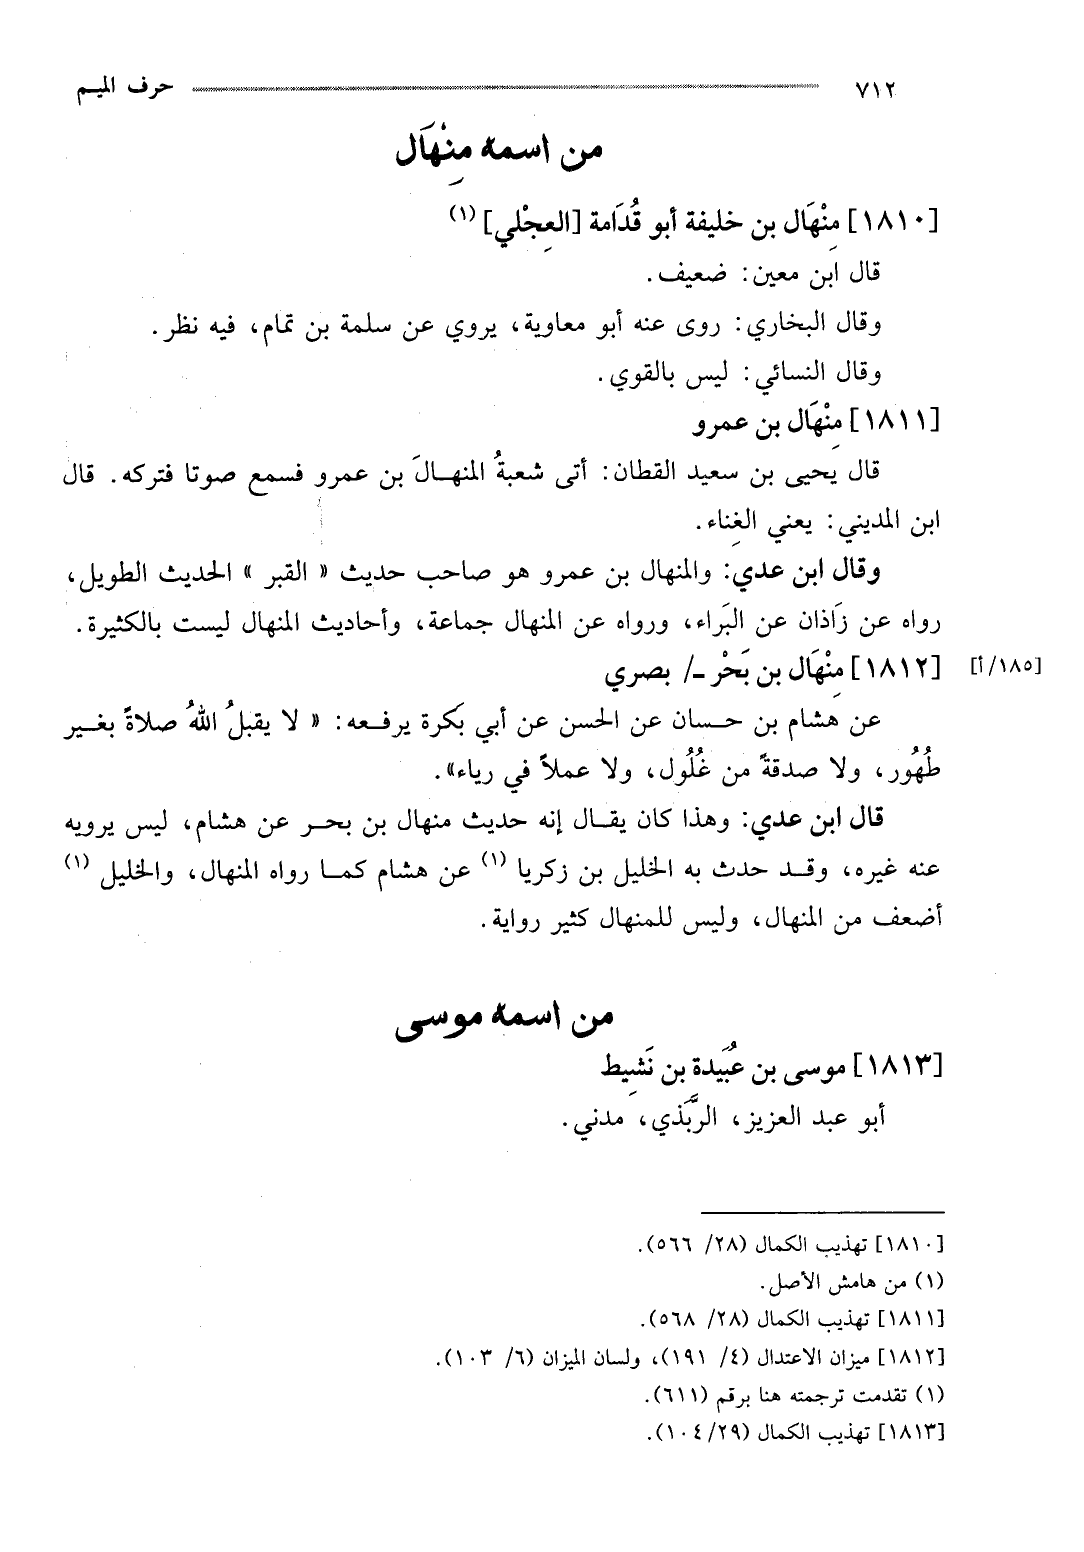 ٧١٢ حرف الميـم
من اسمه مِنْهَال
[١٨١٠] مِنْهَال بن خليفة أبو قُدَامة [العِجْلي] (١)
قال ابن معين: ضعيف.
وقال البخاري: روى عنه أبو معاوية، يروي عن سلمة بن تمام، فيه نظر.
وقال النسائي: ليس بالقوي.
[١٨١١] مِنْهَال بن عمرو
قال يحيى بن سعيد القطان: أتى شعبةُ المنهـالَ بن عمرو فسمع صوتا فتركه. قال
ابن المديني: يعني الغِناء.
وقال ابن عدي: والمنهال بن عمرو هو صاحب حديث « القبر » الحديث الطويل،
رواه عن زَاذان عن البَراء، ورواه عن المنهال جماعة، وأحاديث المنهال ليست بالكثيرة.
[١٨١٢] مِنْهَال بن بَحْر ـ/ بصري [١٨٥/أ]
عن هشام بن حـسان عن الحسن عن أبي بَكرة يرفـعه: « لا يقبلُ اللهُ صلاةً بغـير
طُهُور، ولا صدقةً من غُلُول، ولا عملاً في رياء».
قال ابن عدي: وهذا كان يقـال إنه حديث منهال بن بحـر عن هشام، ليس يرويه
عنه غيره، وقـد حدث به الخليل بن زكريا (١) عن هشام كمـا رواه المنهال، والخليل (١)
أضعف من المنهال، وليس للمنهال كثير رواية.
من اسمه موسى
[١٨١٣] موسى بن عُبَيدة بن نَشِيط
أبو عبد العزيز، الرَّبَذي، مدني.
[١٨١٠] تهذيب الكمال (٢٨/ ٥٦٦).
(١) من هامش الأصل.
[١٨١١] تهذيب الكمال (٢٨/ ٥٦٨).
[١٨١٢] ميزان الاعتدال (٤/ ١٩١)، ولسان الميزان (٦/ ١٠٣).
(١) تقدمت ترجمته هنا برقم (٦١١).
[١٨١٣] تهذيب الكمال (٢٩/ ١٠٤).